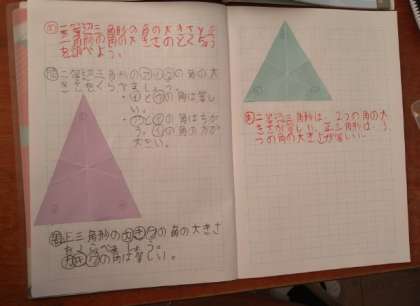 二等辺三角形の角の大きさと
三角形の角の大きさのとくちょう
を調べよう。
二等辺三角形の の角の大
きさをくらべましょう。
・ と の角は等し
い。
・ と の角はちが
う。 の角の方が
大きい。
正三角形の の角の大きさ
をくらべましょう。
の角は等しい。
二等辺三角形は、2つの角の大
きさが等しい。正三角形は、3
つの角の大きさが等しい。